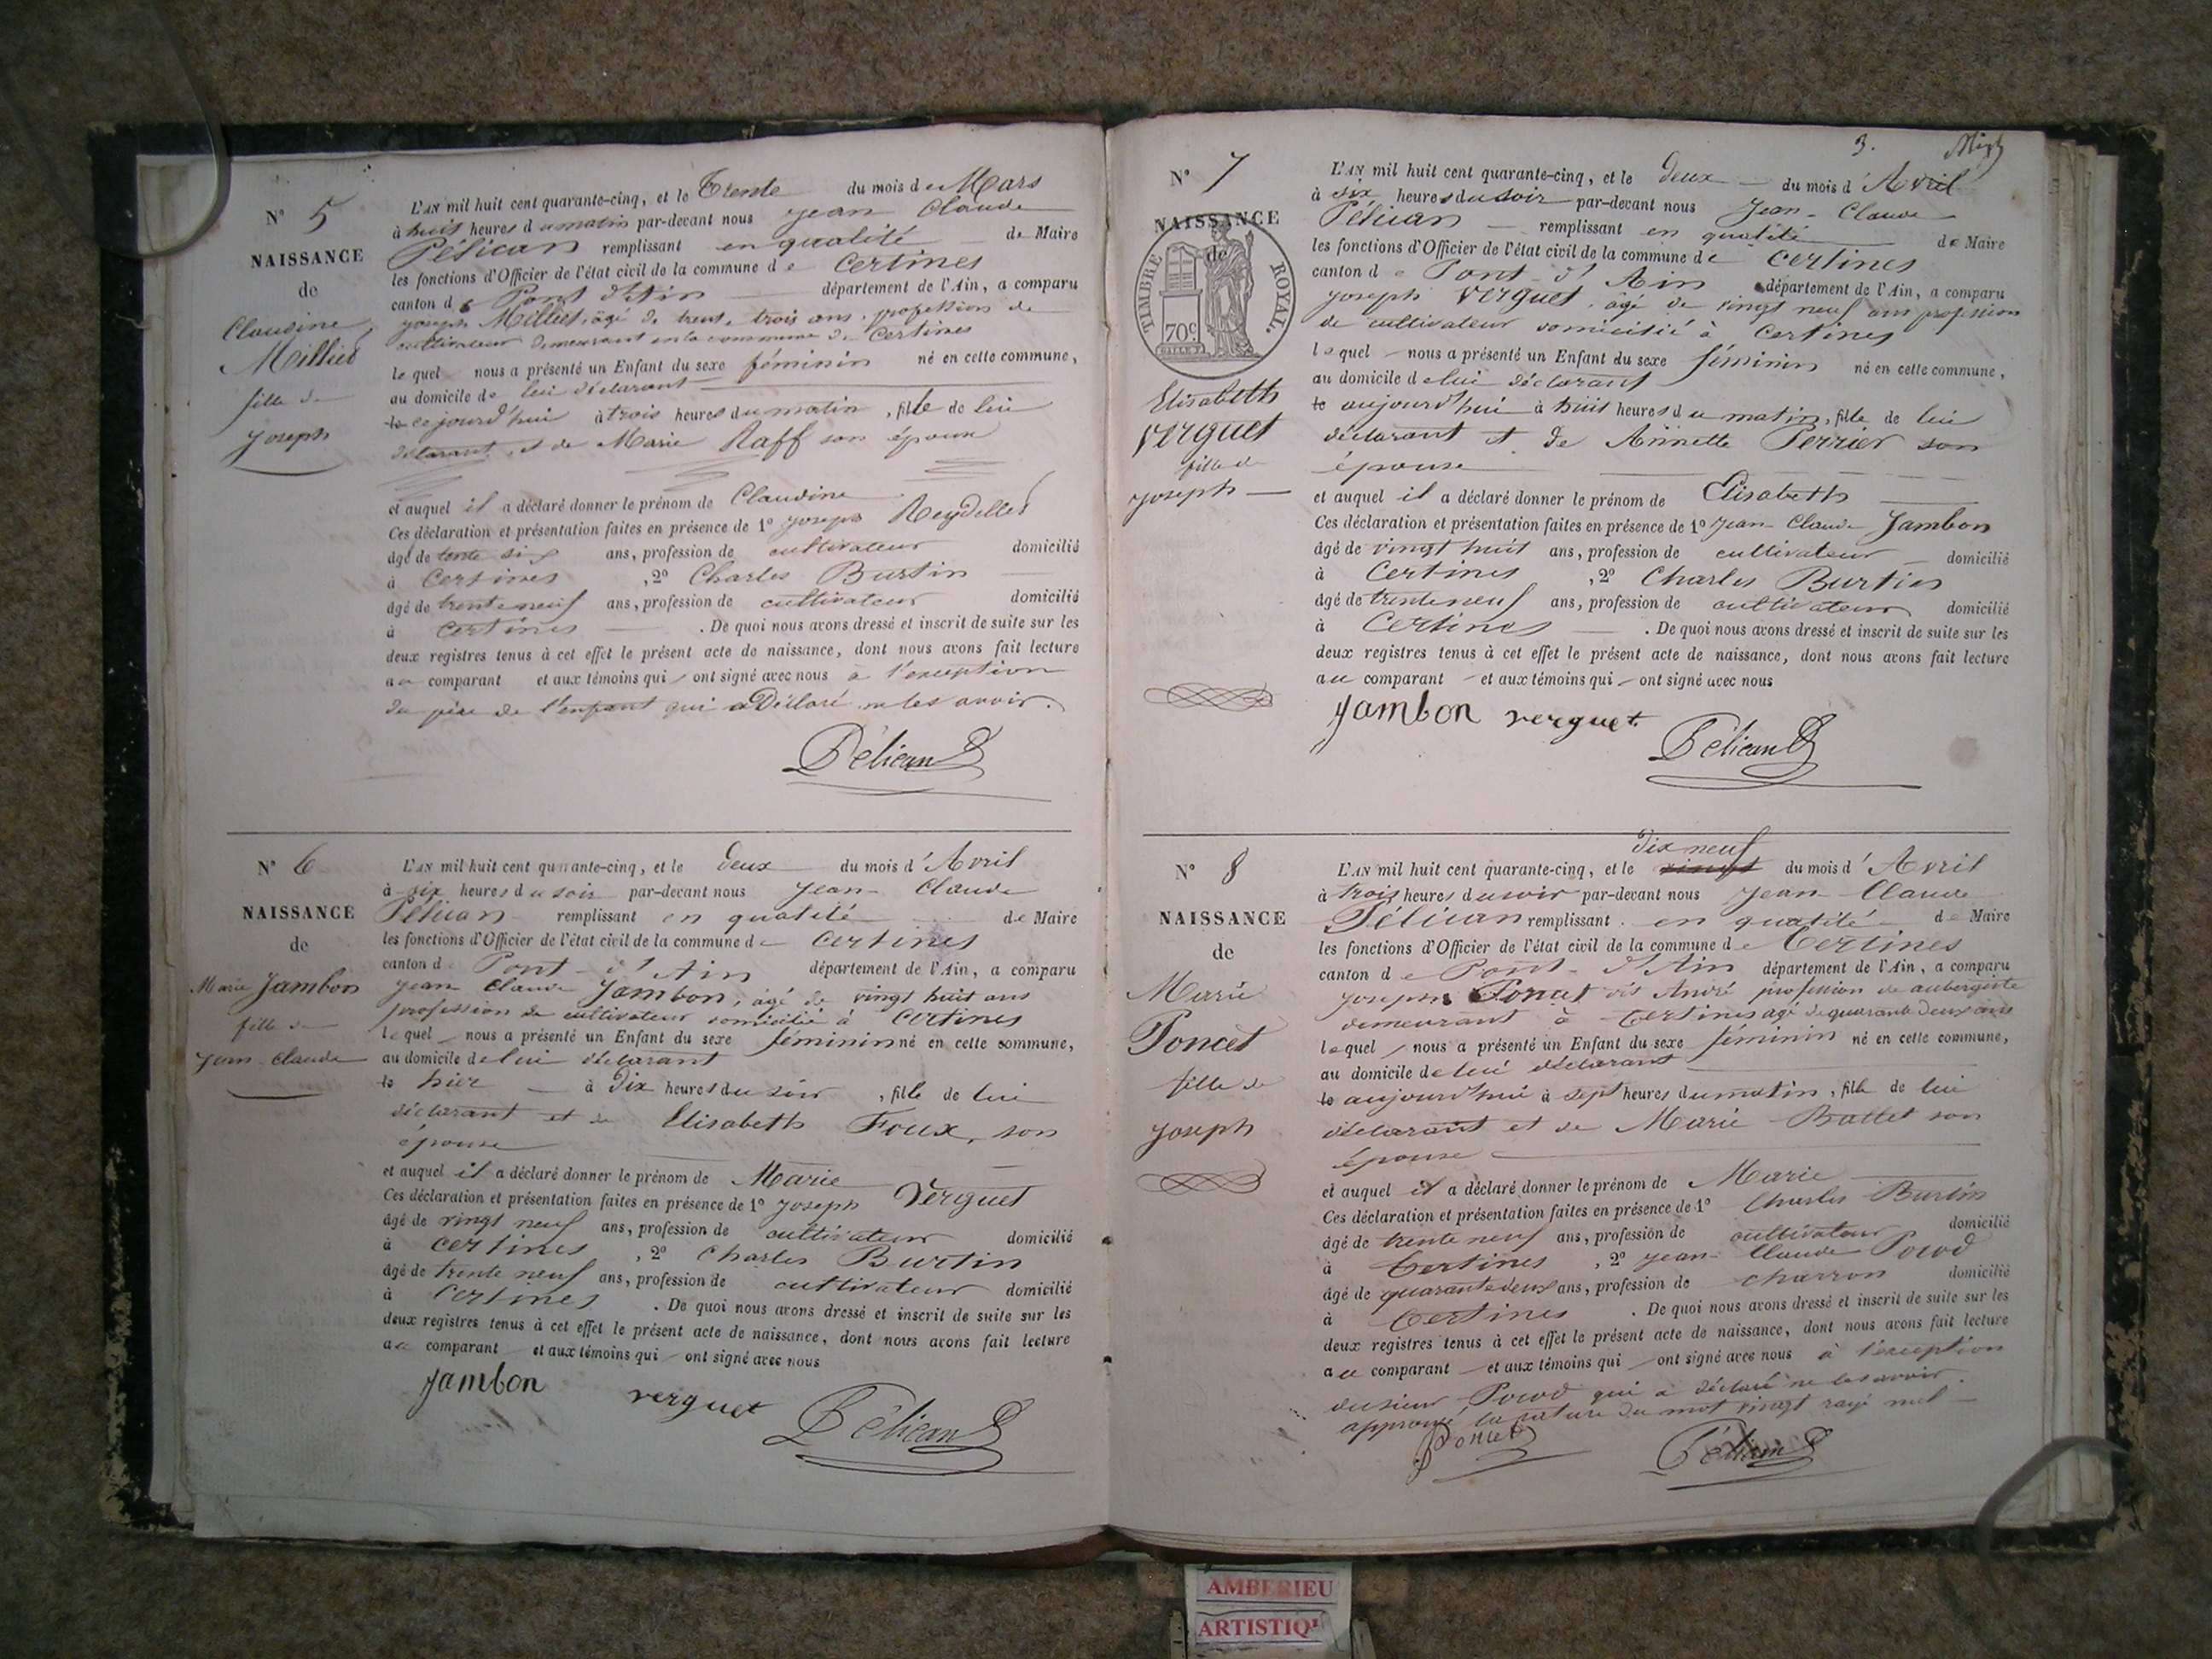 N° 5
NAISSANCE
de
Claudine
Milliet
fille de
Joseph
L'AN mil huit cent quarante-cinq, et le Trente du mois de Mars
à huit heures du matin par-devant nous Jean Claude
Pélican remplissant en qualité de Maire
les fonctions d'Officier de l'état civil de la commune de Certines
canton de Pont d'Ain département de l'Ain, a comparu
Joseph Milliet, âgé de trente trois ans, profession de
cultivateur demeurant en la commune de Certines
lequel nous a présenté un Enfant du sexe féminin né en cette commune,
au domicile de lui déclarant
le cejourd'hui à trois heures du matin, fille de lui
déclarant, et de Marie Raff son épouse
et auquel il a déclaré donner le prénom de Claudine
Ces déclaration et présentation faites en présence de 1° Joseph Reydellet
âgé de trente six ans, profession de cultivateur domicilié
à Certines, 2° Charles Burtin
âgé de trente neuf ans, profession de cultivateur domicilié
à Certines. De quoi nous avons dressé et inscrit de suite sur les
deux registres tenus à cet effet le présent acte de naissance, dont nous avons fait lecture
au comparant et aux témoins qui ont signé avec nous à l'exception
du père de l'enfant qui a Déclaré ne les avoir.
Pélican
N° 6
NAISSANCE
de
Marie Jambon
fille de
Jean-Claude
L'AN mil huit cent quarante-cinq, et le deux du mois d'Avril
à six heures du soir par-devant nous Jean-Claude
Pélican remplissant en qualité de Maire
les fonctions d'Officier de l'état civil de la commune de Certines
canton de Pont-d'Ain département de l'Ain, a comparu
Jean Claude Jambon, âgé de vingt huit ans
profession de cultivateur domicilié à Certines
lequel nous a présenté un Enfant du sexe féminin né en cette commune,
au domicile de lui déclarant
le hier à Dix heures du soir, fille de lui
déclarant et de Elisabeth Foux, son
épouse
et auquel il a déclaré donner le prénom de Marie
Ces déclaration et présentation faites en présence de 1° Joseph Verguet
âgé de vingt neuf ans, profession de cultivateur domicilié
à Certines, 2° Charles Burtin
âgé de trente neuf ans, profession de cultivateur domicilié
à Certines. De quoi nous avons dressé et inscrit de suite sur les
deux registres tenus à cet effet le présent acte de naissance, dont nous avons fait lecture
au comparant et aux témoins qui ont signé avec nous
Jambon verguet Pélican
3.
N° 7
NAISSANCE
de
TIMBRE ROYAL.
70c
Elisabeth
Verguet
fille de
Joseph
L'AN mil huit cent quarante-cinq, et le deux du mois d'Avril
à six heures du soir par-devant nous Jean-Claude
Pélican remplissant en qualité de Maire
les fonctions d'Officier de l'état civil de la commune de Certines
canton de Pont-d'Ain département de l'Ain, a comparu
Joseph Verguet, âgé de vingt neuf ans profession
de cultivateur domicilié à Certines
lequel nous a présenté un Enfant du sexe féminin né en cette commune,
au domicile de lui déclarant
le aujourd'hui à huit heures du matin, fille de lui
déclarant et de Annette Perrier son
épouse
et auquel il a déclaré donner le prénom de Elisabeth
Ces déclaration et présentation faites en présence de 1° Jean-Claude Jambon
âgé de vingt huit ans, profession de cultivateur domicilié
à Certines, 2° Charles Burtin
âgé de trente neuf ans, profession de cultivateur domicilié
à Certines. De quoi nous avons dressé et inscrit de suite sur les
deux registres tenus à cet effet le présent acte de naissance, dont nous avons fait lecture
au comparant et aux témoins qui ont signé avec nous
Jambon verguet Pélican
N° 8
NAISSANCE
de
Marie
Poncet
fille de
Joseph
dix neuf
L'AN mil huit cent quarante-cinq, et le vingt du mois d'Avril
à trois heures du soir par-devant nous Jean-Claude
Pélican remplissant en qualité de Maire
les fonctions d'Officier de l'état civil de la commune de Certines
canton de Pont-d'Ain département de l'Ain, a comparu
Joseph Poncet dit André profession de aubergiste
demeurant à Certines agé de quarante deux ans
lequel nous a présenté un Enfant du sexe féminin né en cette commune,
au domicile de lui déclarant
le aujourd'hui à sept heures du matin, fille de lui
déclarant et de Marie Ballet son
épouse
et auquel il a déclaré donner le prénom de Marie
Ces déclaration et présentation faites en présence de 1° Charles Burtin
âgé de trente neuf ans, profession de cultivateur domicilié
à Certines, 2° Jean-Claude
âgé de quarante deux ans, profession de charron domicilié
à Certines. De quoi nous avons dressé et inscrit de suite sur les
deux registres tenus à cet effet le présent acte de naissance, dont nous avons fait lecture
au comparant et aux témoins qui ont signé avec nous à l'exception
du sieur qui a déclaré ne les avoir.
approuvé la rature du mot vingt rayé nul
Poncet Pélican
AMBERIEU
ARTISTIQ